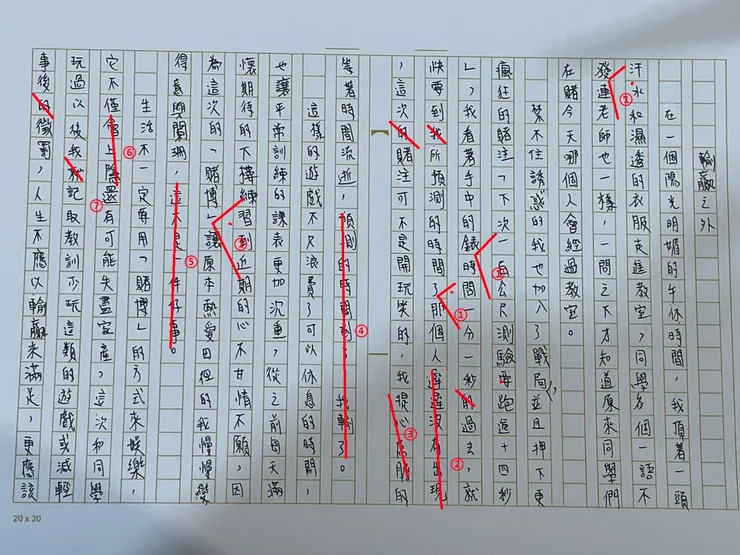 輸贏之外
在一個陽光明媚的午休時間,我頂著一頭
汗水和濕透的衣服走進教室,同學各個一語不
發連老師也一樣,一問之下才知道原來同學們
在賭今天哪個人會經過教室。
禁不住誘惑的我也加入了戰局,並且押下更
瘋狂的賭注「下次一百公尺測驗要跑進十四秒
」,我看著手中的錶時間一分一秒的過去,就
快要到我所預測的時間了那個人遲遲沒有出現
,這次的賭注可不是開玩笑的,我提心吊膽的
等著時間流逝,預測的時間到。我輸了。
這樣的遊戲不只浪費了可以休息的時間,
也讓平常訓練的課表更加沉重,從之前每天滿
懷期待的下樓練習到近期的心不甘情不願,因
為這次的「賭博」讓原本熱愛田徑的我慢慢變
得意興闌珊,這不是一件好事。
生活不一定要用「賭博」的方式來娛樂,
它不僅會上癮還有可能失盡家產,這次和同學
玩過以後我就記取教訓少玩這類的遊戲或減輕
事後的懲罰,人生不應以輸贏來滿足,更應該
①
①
①
②
③
④
③
⑤
⑥
⑦
20 x 20